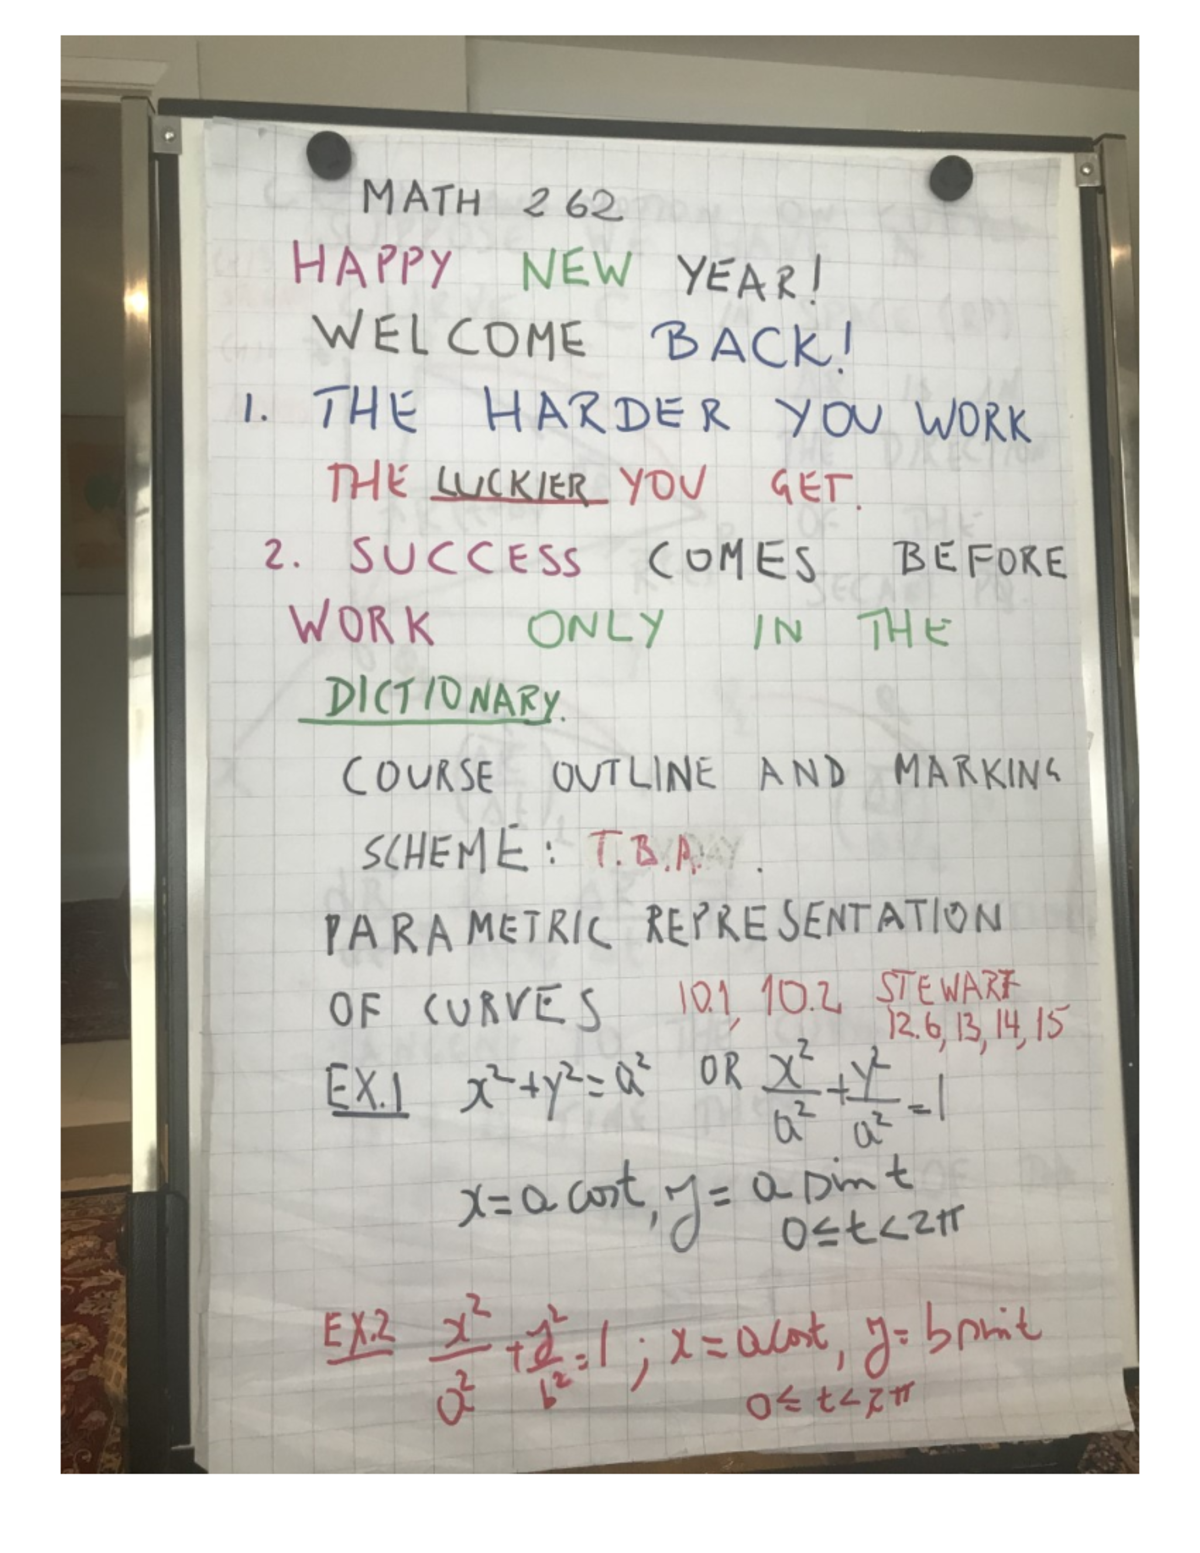 MATH 262
HAPPY NEW YEAR!
WELCOME BACK!
1. THE HARDER YOU WORK
THE LUCKIER YOU GET.
2. SUCCESS COMES BEFORE
WORK ONLY IN THE
DICTIONARY.
COURSE OUTLINE AND MARKING
SCHEME: T.B.A. .
PARAMETRIC REPRESENTATION
OF CURVES 10.1, 10.2 STEWART
12.6, 13, 14, 15
EX.1 x²+y²=a² OR x²/a² + y²/a² = 1
x=a cost, y= a sin t
0≤t<2π
EX.2 x²/a² + y²/b² = 1 ; x=a cost, y= b sin t
0≤t<2π